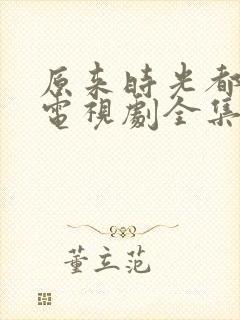 原来时光都
電視劇全集
董立范